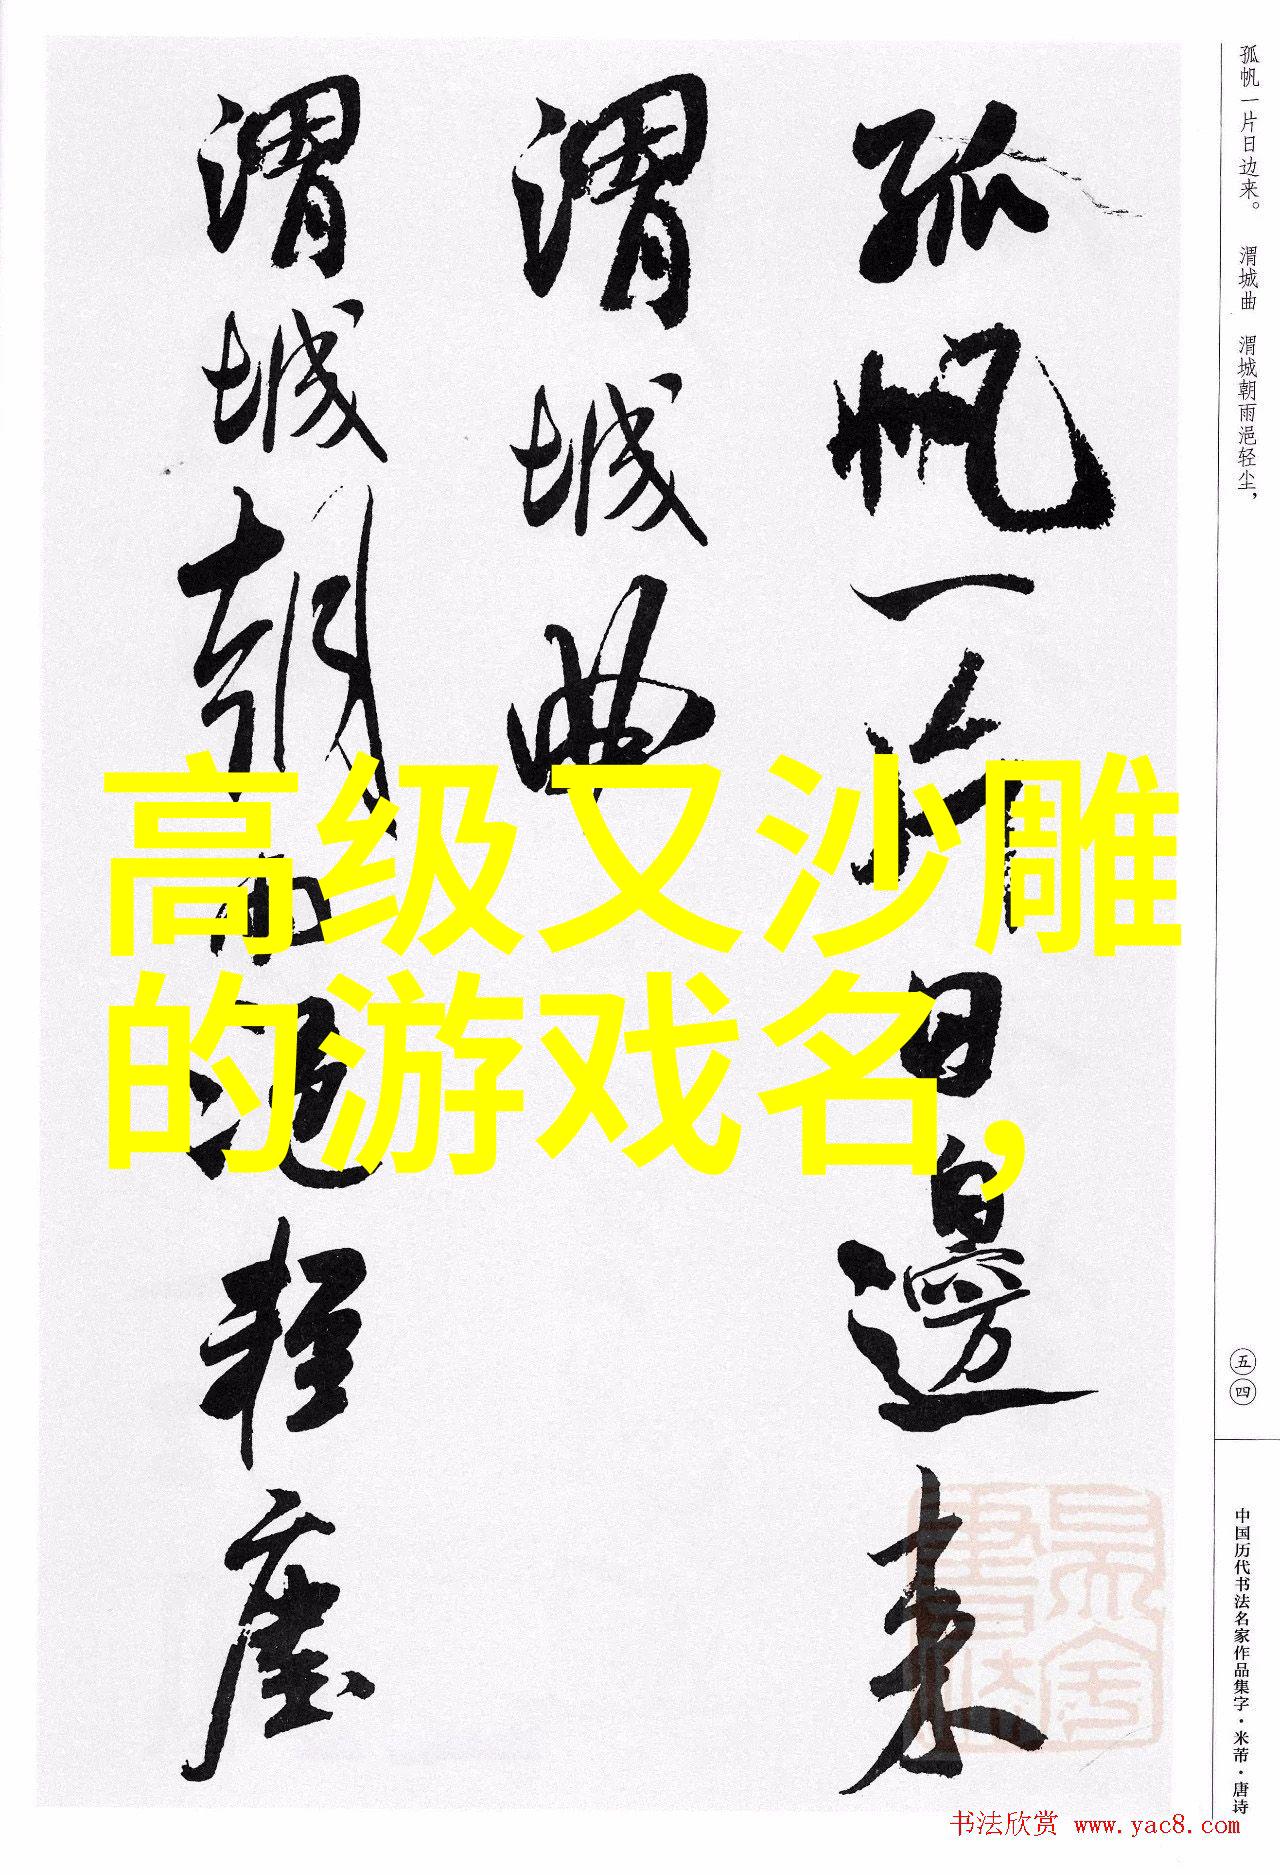 孤帆一片日边来。 渭城曲 渭城朝雨浥轻尘，
孤帆一片日邊来
渭城曲
渭城朝雨浥轻塵
高级又沙雕
的游戏名，
五四
中国历代书法名家作品集字·米芾·唐诗
书法欣赏 www.yac8.com